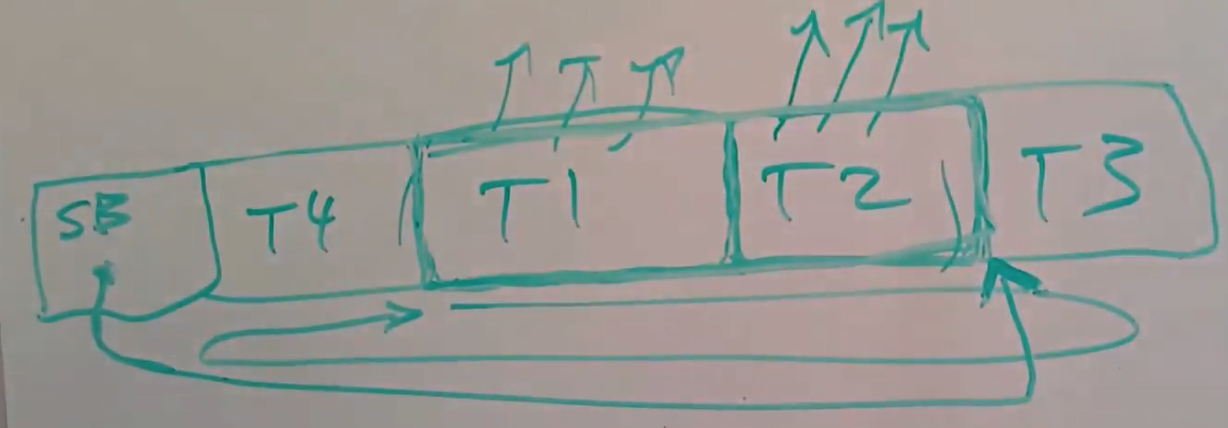 SB T4 T1 T2 T3